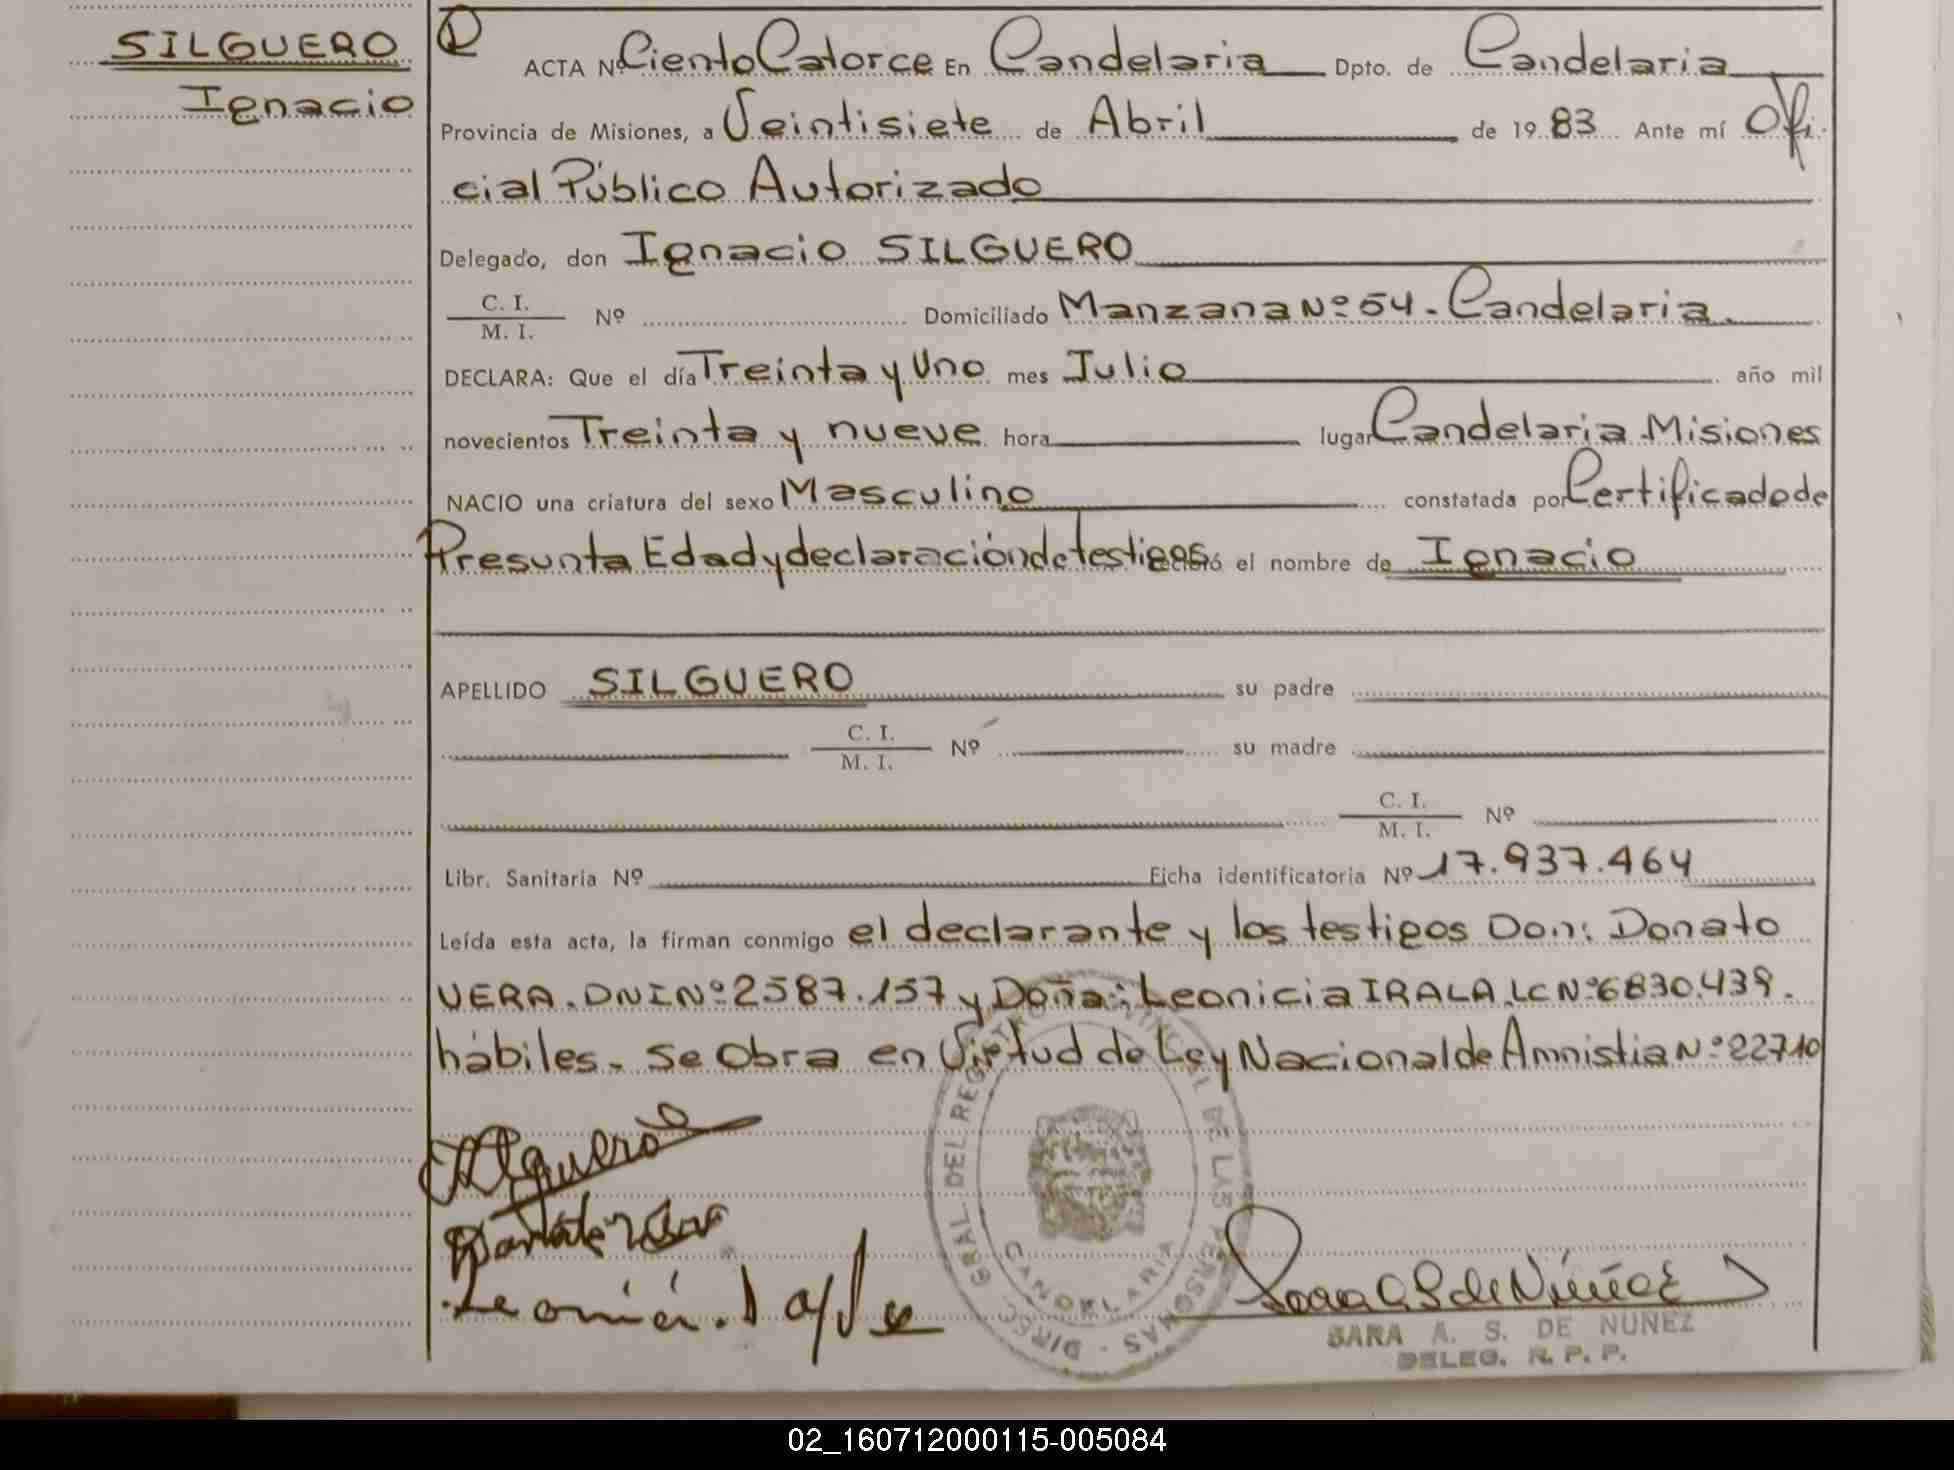 SILGUERO
Ignacio
ACTA Nº Ciento Catorce En Candelaria Dpto. de Candelaria
Provincia de Misiones, a Veintisiete de Abril de 19 83 Ante mí Ofi
cial Público Autorizado
Delegado, don Ignacio SILGUERO
C. I.
M. I. Nº Domiciliado Manzana Nº 54 - Candelaria
DECLARA: Que el día Treinta y Uno mes Julio año mil
novecientos Treinta y nueve hora lugar Candelaria Misiones
NACIO una criatura del sexo Masculino constatada por Certificado de
Presunta Edad y declaración de Testigos el nombre de Ignacio
APELLIDO SILGUERO su padre
C. I.
M. I. Nº su madre
C. I.
M. I. Nº
Libr. Sanitaria Nº Ficha identificatoria Nº 17.937.464
Leída esta acta, la firman conmigo el declarante y los testigos Don: Donato
VERA. DNI Nº 2587.157 y Doña: Leonicia IRALA. LC Nº 6830.439.
hábiles. Se Obra en Virtud de Ley Nacional de Amnistia Nº 22710
DIREC. GRAL DEL REGISTRO PROVINCIAL DE LAS PERSONAS
CANDELARIA
SARA A. S. DE NUÑEZ
DELEG. R. P. P.
02_160712000115-005084